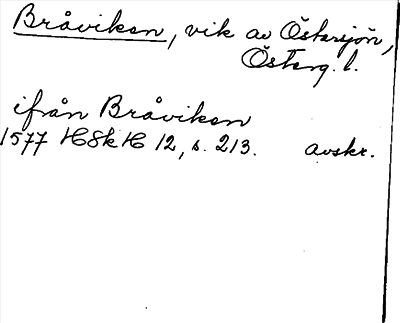 Bråviken, vik av Östersjön,
Österg. l.
ifrån Bråviken
1577 HSkH 12, s. 213. avskr.